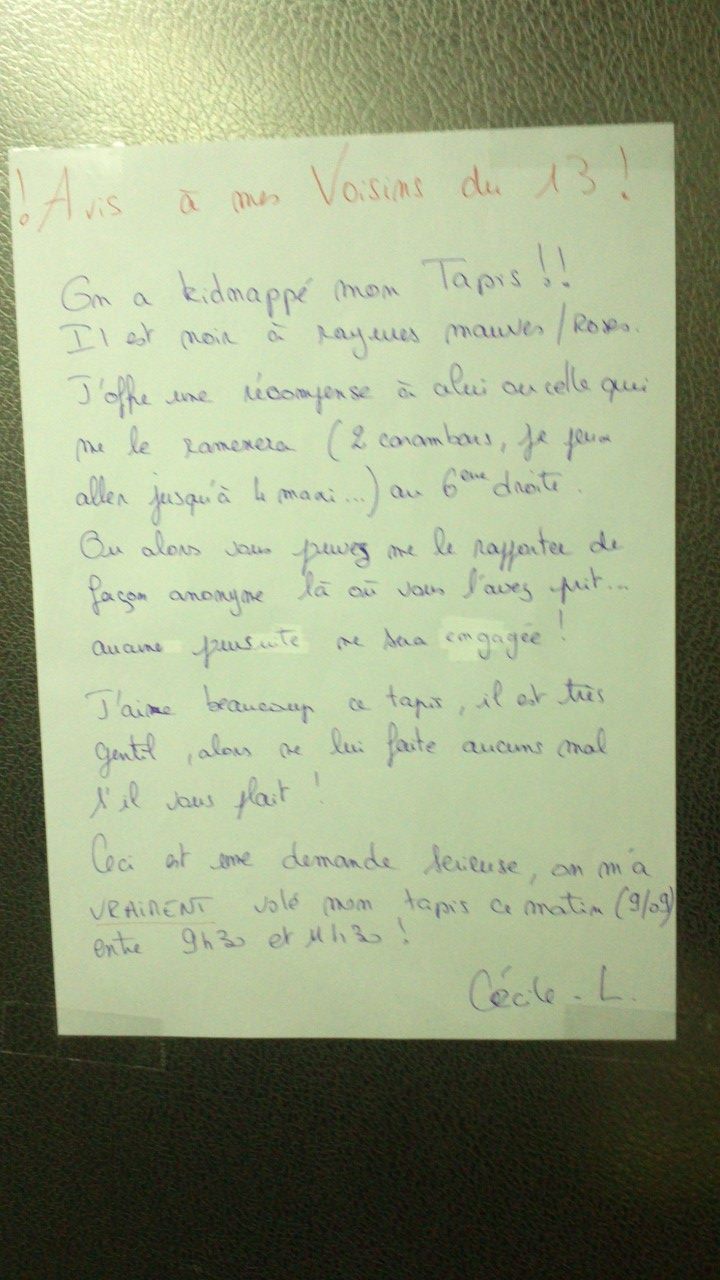 ! Avis à mes Voisins du 13 !
On a kidnappé mon Tapis !!
Il est noir à rayures mauves/Roses.
J'offre une récompense à celui ou celle qui
me le ramenera (2 carambars, je peux
aller jusqu'à 4 maxi...) au 6ème droite.
Ou alors vous pouvez me le rapporter de
façon anonyme là où vous l'avez prit...
aucune poursuite ne sera engagée !
J'aime beaucoup ce tapis, il est très
gentil, alors ne lui faite aucuns mal
s'il vous plait !
Ceci est une demande serieuse, on m'a
VRAIMENT volé mon tapis ce matin (9/09)
entre 9h30 et 11h30 !
Cécile - L.